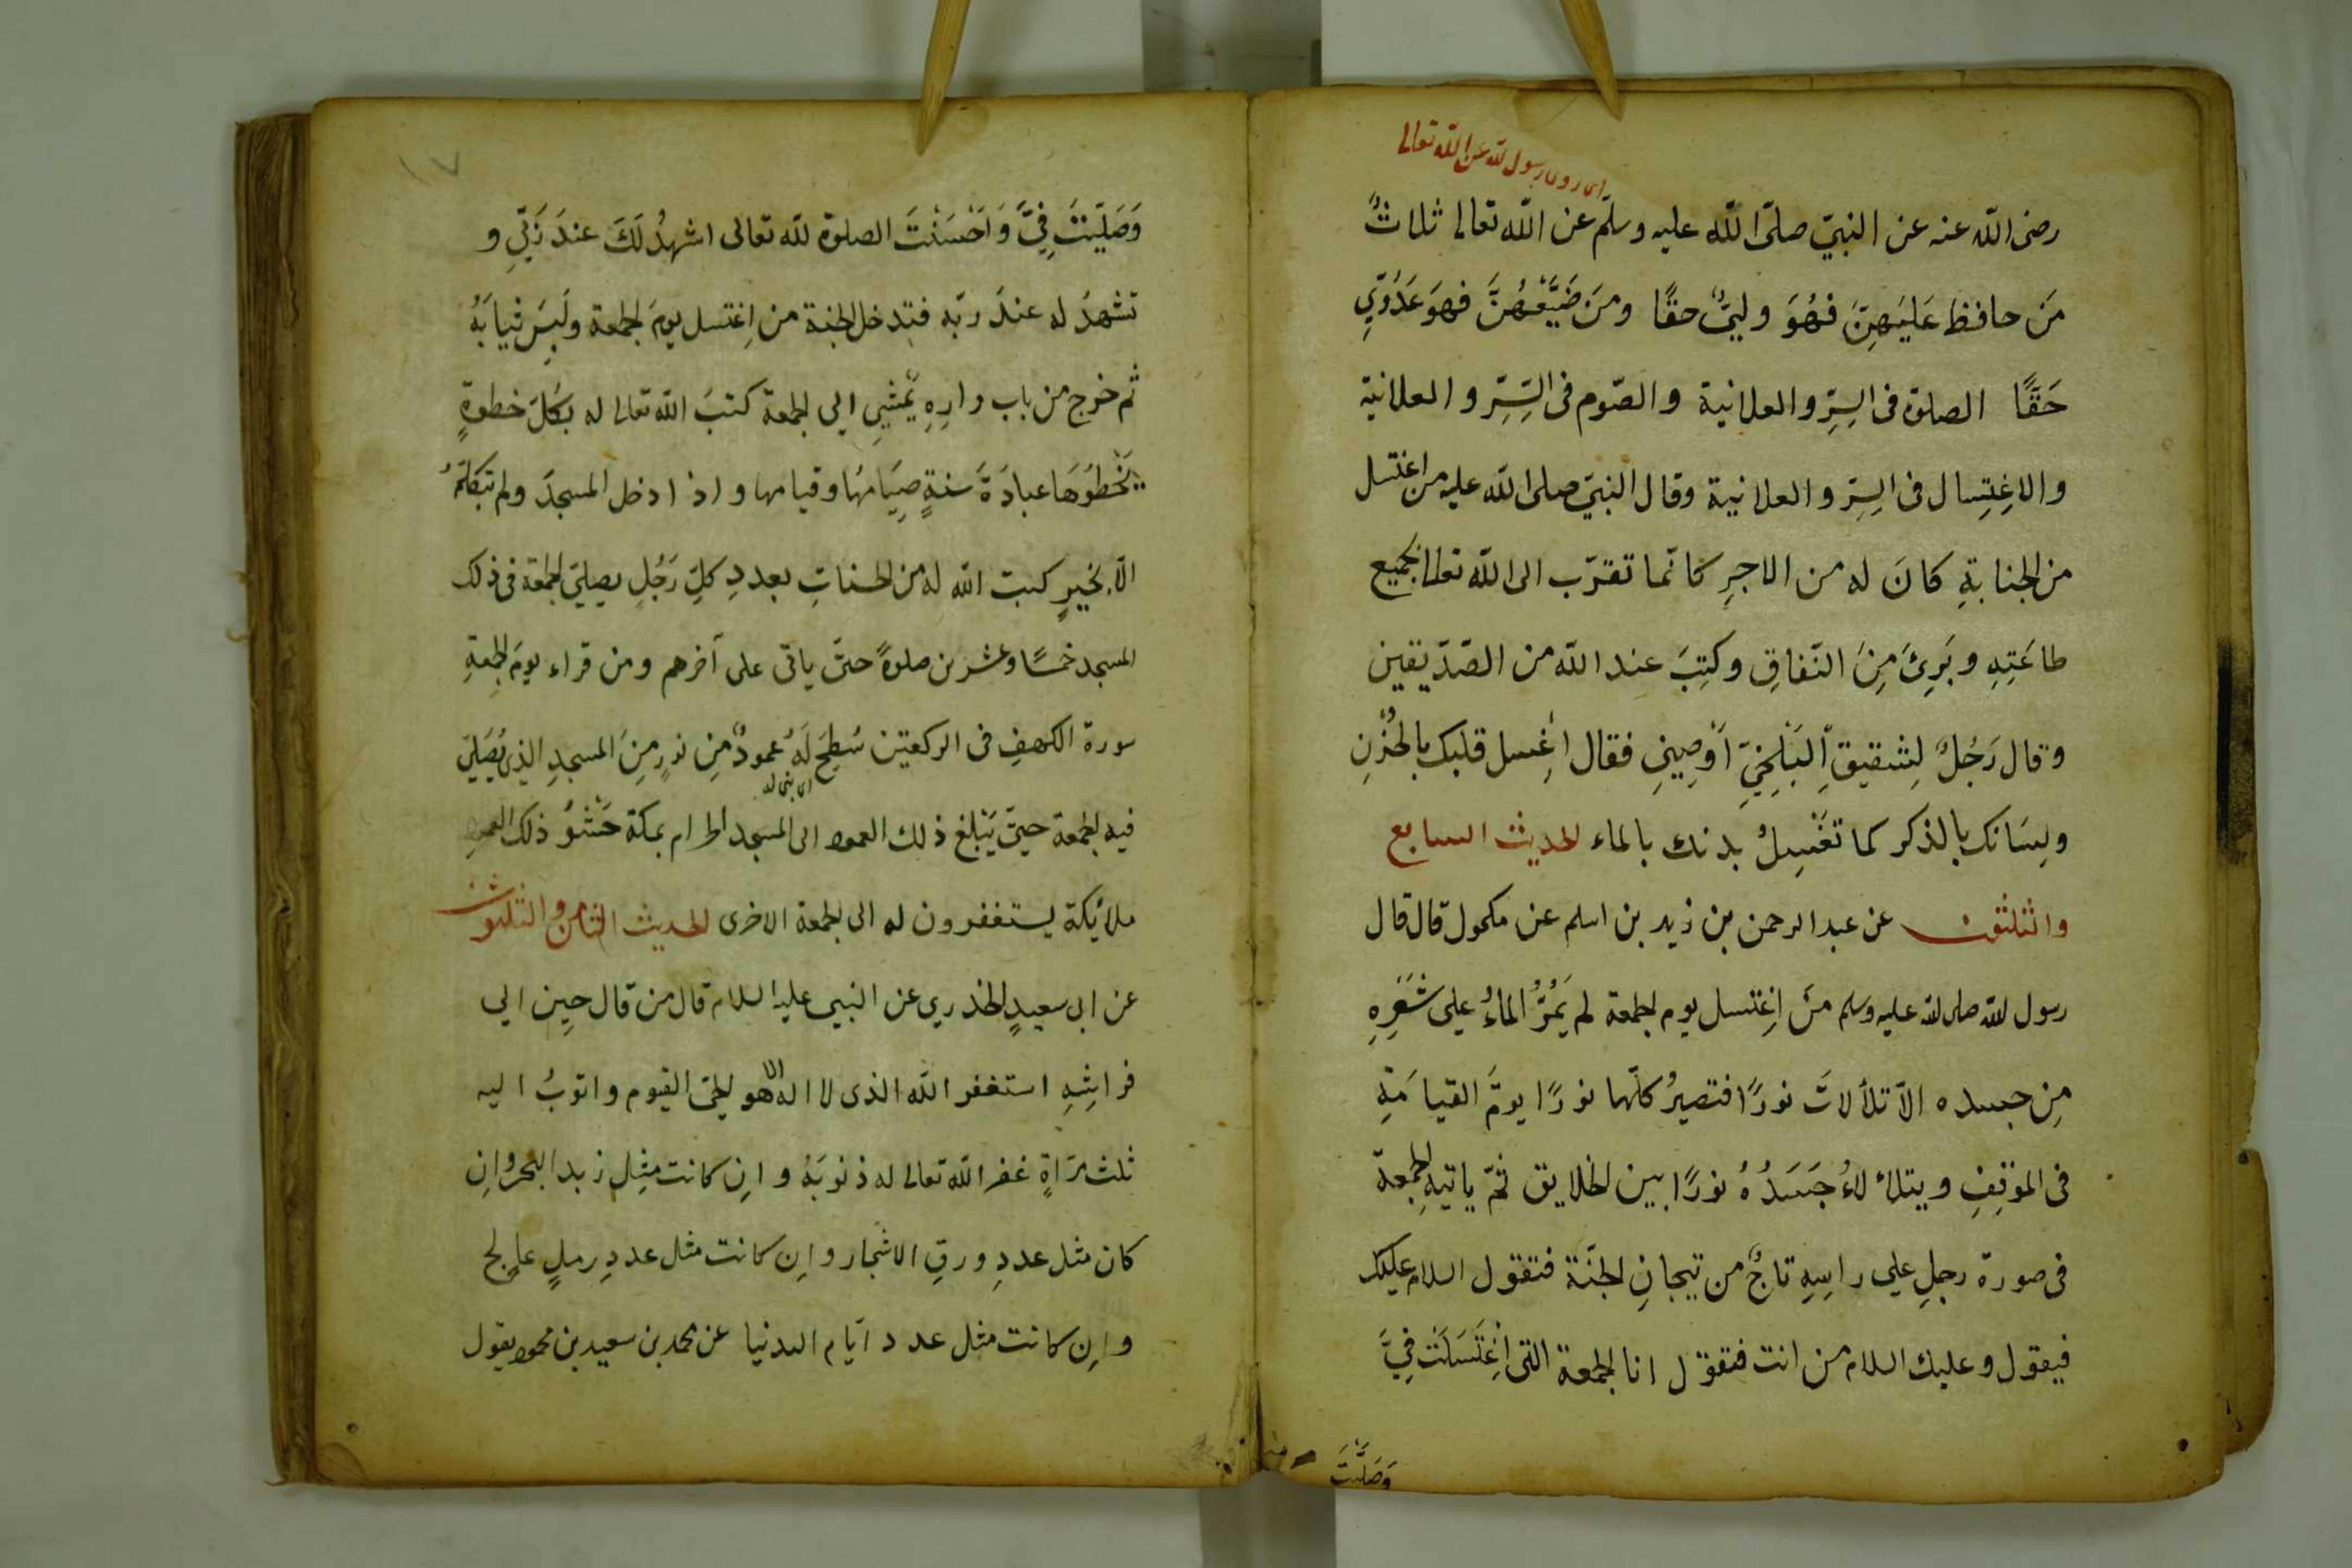 اى روى رسول الله عن الله تعالى
رضى الله عنه عن النبيّ صلّى الله عليه وسلّم عن الله تعالى ثلاثٌ
مَن حافظ عَلَيهِنَّ فهُوَ وليٌّ حقًا ومَن ضَيَّعْهُنَّ فهوَ عَدُوِّيِ
حَقًّا الصلوة فى السِرِّ والعلانية والصّوم فى السِّرِّ والعلانية
والاغِتِسال فى السِرِّ والعلانية وقال النبيّ صلى الله عليه من اغتسل
من الجنابةِ كانَ له من الاجرِ كانّما تقرّب الى الله تعالى بجميع
طاعَتِهِ وبَرِئَ مِنَ النّفاقِ وكتِبَ عند الله من الصّدّيقين
وقال رَجُلٌ لِشقيقِ الْبَلْخِيِّ اَوْصِينِ فقال اغِسل قلبك بالحُزْنِ
ولِسَانك بالذكر كما تغَسِلُ بدنك بالماء الحديث السابع
والثلثون عن عبد الرحمن بن زيد بن اسلم عن مكحول قال قال
رسول الله صلى الله عليه وسلم مَنَ اِغتسل يوم الجمعة لم يَمُرُّ الماءُ على شَعَرِهِ
مِن جسده الاّ تلألاتَ نورًا فتصيرُ كلّها نورًا يومَ القيامَةِ
فى الموْقِفِ ويتلألاءُ جَسَدُهُ نورًا بين الخلايق ثمّ ياتيهِ الجمعة
فى صورة رجلِ على راسِهِ تاجٌ من تيجانِ الجنّة فتقول السلام عليك
فيقول وعليك السلام من انت فتقول انا الجمعة التى اغِتَسَلْتَ فِيَّ
وَصَلَّيتَ
١٧
وَصَلَّيْتَ فِيَّ وَاَحْسَنْتَ الصلوة لله تعالى اشهدُ لَكَ عندَ رَبّيِ و
تشهدُ له عندَ ربّه فتدخل الجنة من اِغتسل يومَ الجمعة ولَبِسَ ثيابَهُ
ثم خرج من باب دارِهِ يَمْشيِ الى الجمعة كتبَ الله تعالى له بكلّ خطوةٍ
يَخْطوَهَا عبادَةَ سنةٍ صِيَامهُا وقيامها واذا دخل المسجدَ ولم تتَكلّمْ
الّا بخيرٍ كبت الله له من الحسناتِ بعددِ كلِّ رَجُلٍ يصلّيِ الجمعة فى ذلك
المسجد خمسًا وعشرين صلوةً حتىّ ياتى على آخرهم ومن قراء يومَ الجمعةِ
سورة الكهفِ فى الركعتين سُطِحَ لَهُ عمودٌ مِن نورٍ مِنَ المسجدِ الذِى يُصَلىّ
اى بنى له
فيه الجمعة حتىّ يَبْلغ ذلك العمود الى المسجد الحرام بمكة حَشْوُ ذلك العمودِ
ملائكة يستغفرون له الى الجمعة الاخرى الحديث الثامن والثلثون
عن ابى سعيدٍ الخدرى عن النبى عليه السلام قال من قال حِين الى
فراشِهِ استغفر الله الذى لا اله الا هو الحىّ القيوم واتوبُ اليه
ثلث مَرّاةٍ غفر الله تعالى له ذنوبَهُ وانِ كانت مثِل زبد البحر وانِ
كان مثل عددِ ورقِ الاشجار وانِ كانت مثل عددِ رملٍ عالج
وانِ كانت مثل عدد ايّام الدنيا عن محمد بن سعيد بن محمود يقول